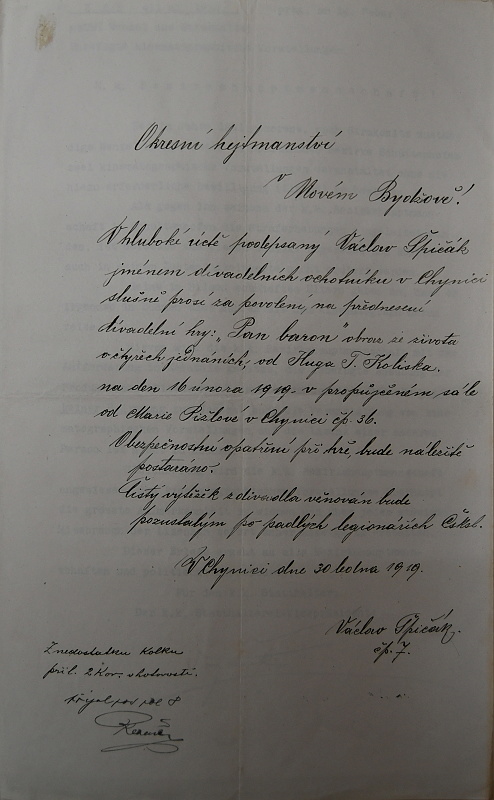 Okresní hejtmanství
v Novém Bydžově!
V hluboké úctě podepsaný Václav Špičák
jménem divadelních ochotníku v Chynici
slušně prosí za povolení, na přednesení
divadelní hry: „Pan baron" obraz ze života
o čtyřech jednáních, od Huga T. Koliska.
na den 16 února 1919 v propůjčeném sále
od Marie Pižlové v Chynici čp. 36.
Obezpečnostní opatření při hře, bude náležitě
postaráno.
Čistý výtěžek z divadla věnován bude
pozustalým po padlých legionářích Čskl.
V Chynici dne 30 ledna 1919.
Václav Špičák.
čp. 7.
Z nedostatku kolku
příl. 2 Kor. v hotovosti.